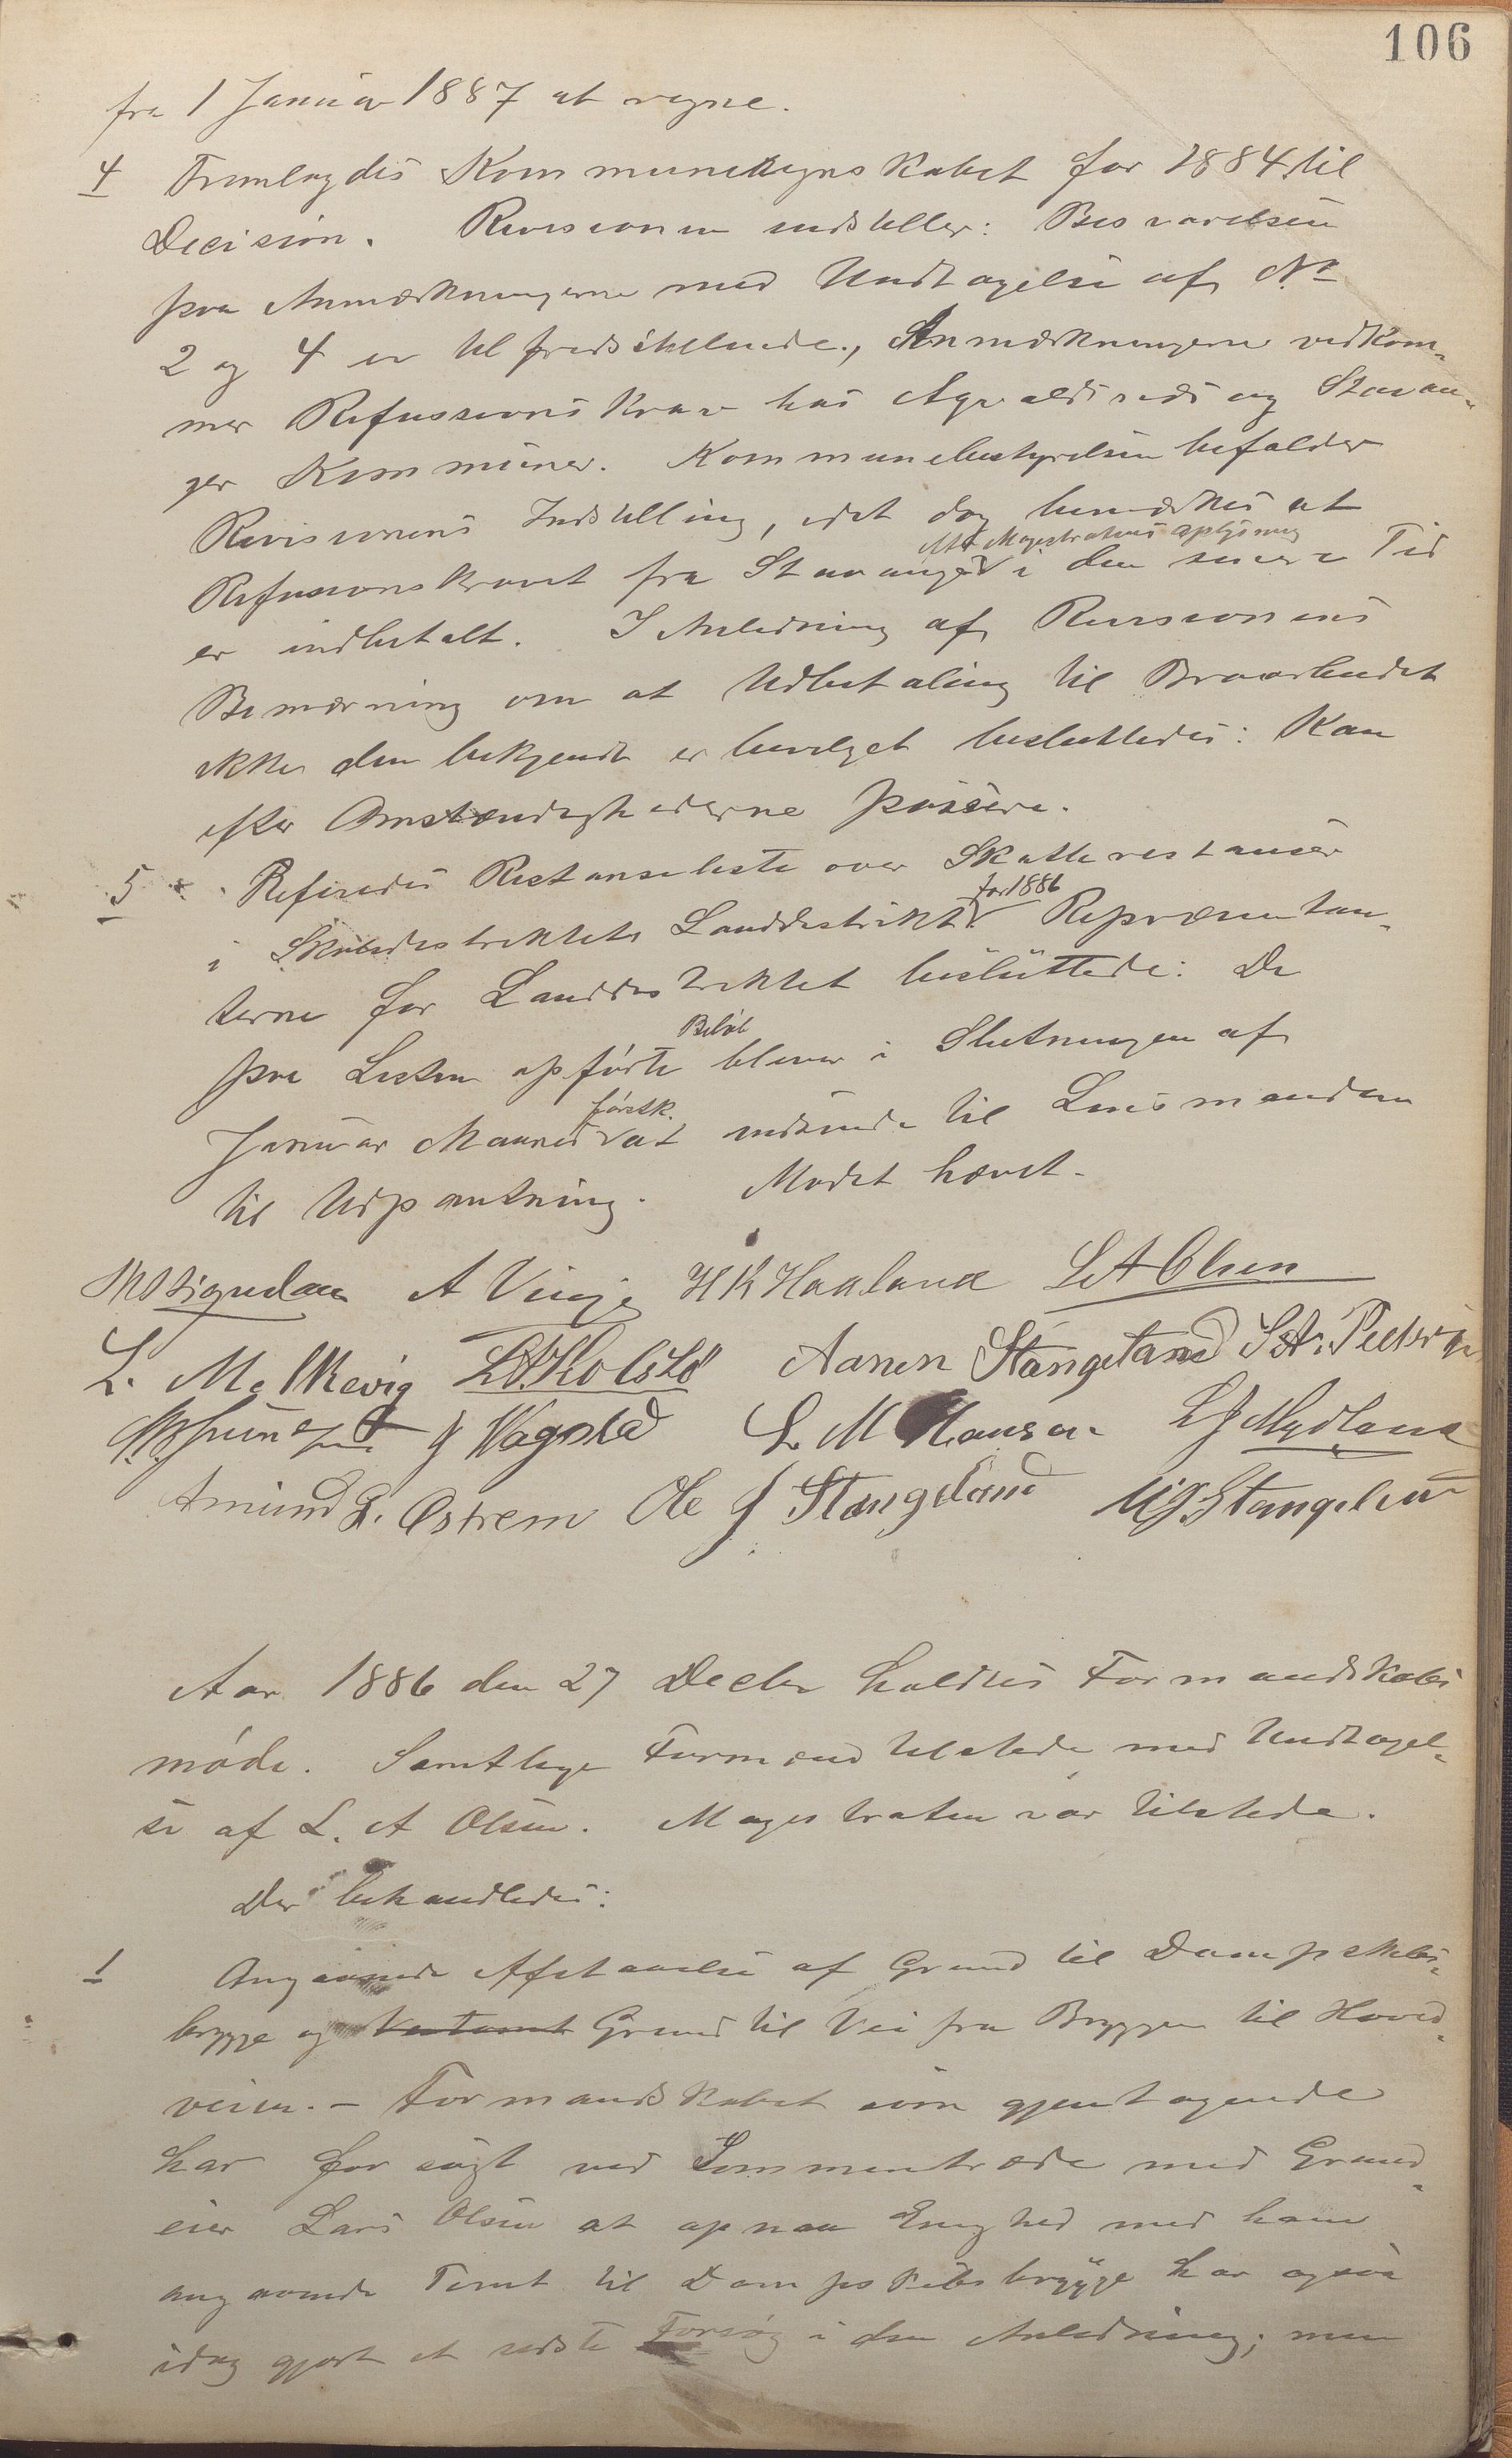 106
fra 1 Januar 1887 at regne.
4 Fremlagdes Kommuneregnskabet for 1884 til
Decision. Revisionen indstiller: Besvarelsen
paa Anmærkningerne med Undtagelse af No
2 og 4 er tilfredsstillende., Anmærkningerne vedkom-
mer Refussionskrav hos Agvaldsnes og Stavan-
ger Kommuner. Kommunebestyrelsen befalder
Revisionens Indstilling, idet dog bemærkes at
efter Magistratens Oplysning
Refusionskravet fra Stavanger i den senere Tid
er indbetalt. I Anledning af Revisionens
Bemærning om at Udbetaling til Braarbudet
ikke den bekjendt er bevilget besluttedes: Kan
efter Omstændighederne passere.
5 Refiredes Restanseliste over Skatterestanser
for 1886
i Skoledistriktets Landdistrikt. Repræsentan-
terne for Landdistriktet besluttede: De
Beløb
paa Listen opførte bliver i Slutningen af
førstk.
Januar Maaned at indsende til Lensmanden
til Udpantning. Mødet hævet.
A Vinje H K Haaland L A Olsen
L. Medhaug L. A. Kolstø Aanen Stangeland S. A. Pedersen
J Vagsted L. M Hansen L J Mydland
Amund L. Østrem Ole J Stangeland M J Stangeland
Aar 1886 den 27 Decbr holdtes Formandskabs
møde. Samtlige Formænd tilstede med Undtagel-
se af L. A Olsen. Magistraten var tilstede.
Der behandledes:
1 Angaaende Afstaaelse af Grund til Dampskibs-
brygge og Grund til Vei fra Bryggen til Hoved-
veien. - Formandskabet som gjentagende
har forsøgt ved Sammentræde med Grund-
eier Lars Olsen at opnaa Enighed med ham
angaaende Tomt til Dampskibsbrygge har ogsaa
idag gjort et sidste Forsøg i den Anledning; men